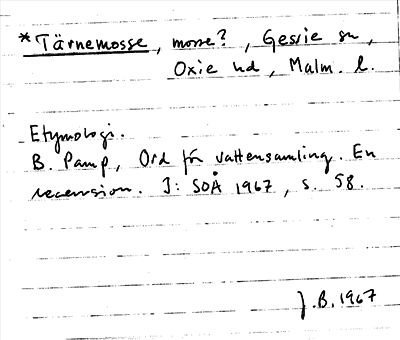 *Tärnemosse, mosse?, Gessie sn,
Oxie hd, Malm. l.
Etymologi.
B. Pamp, Ord för vattensamling. En
recension. I: SOÅ 1967, s. 58.
J.B. 1967